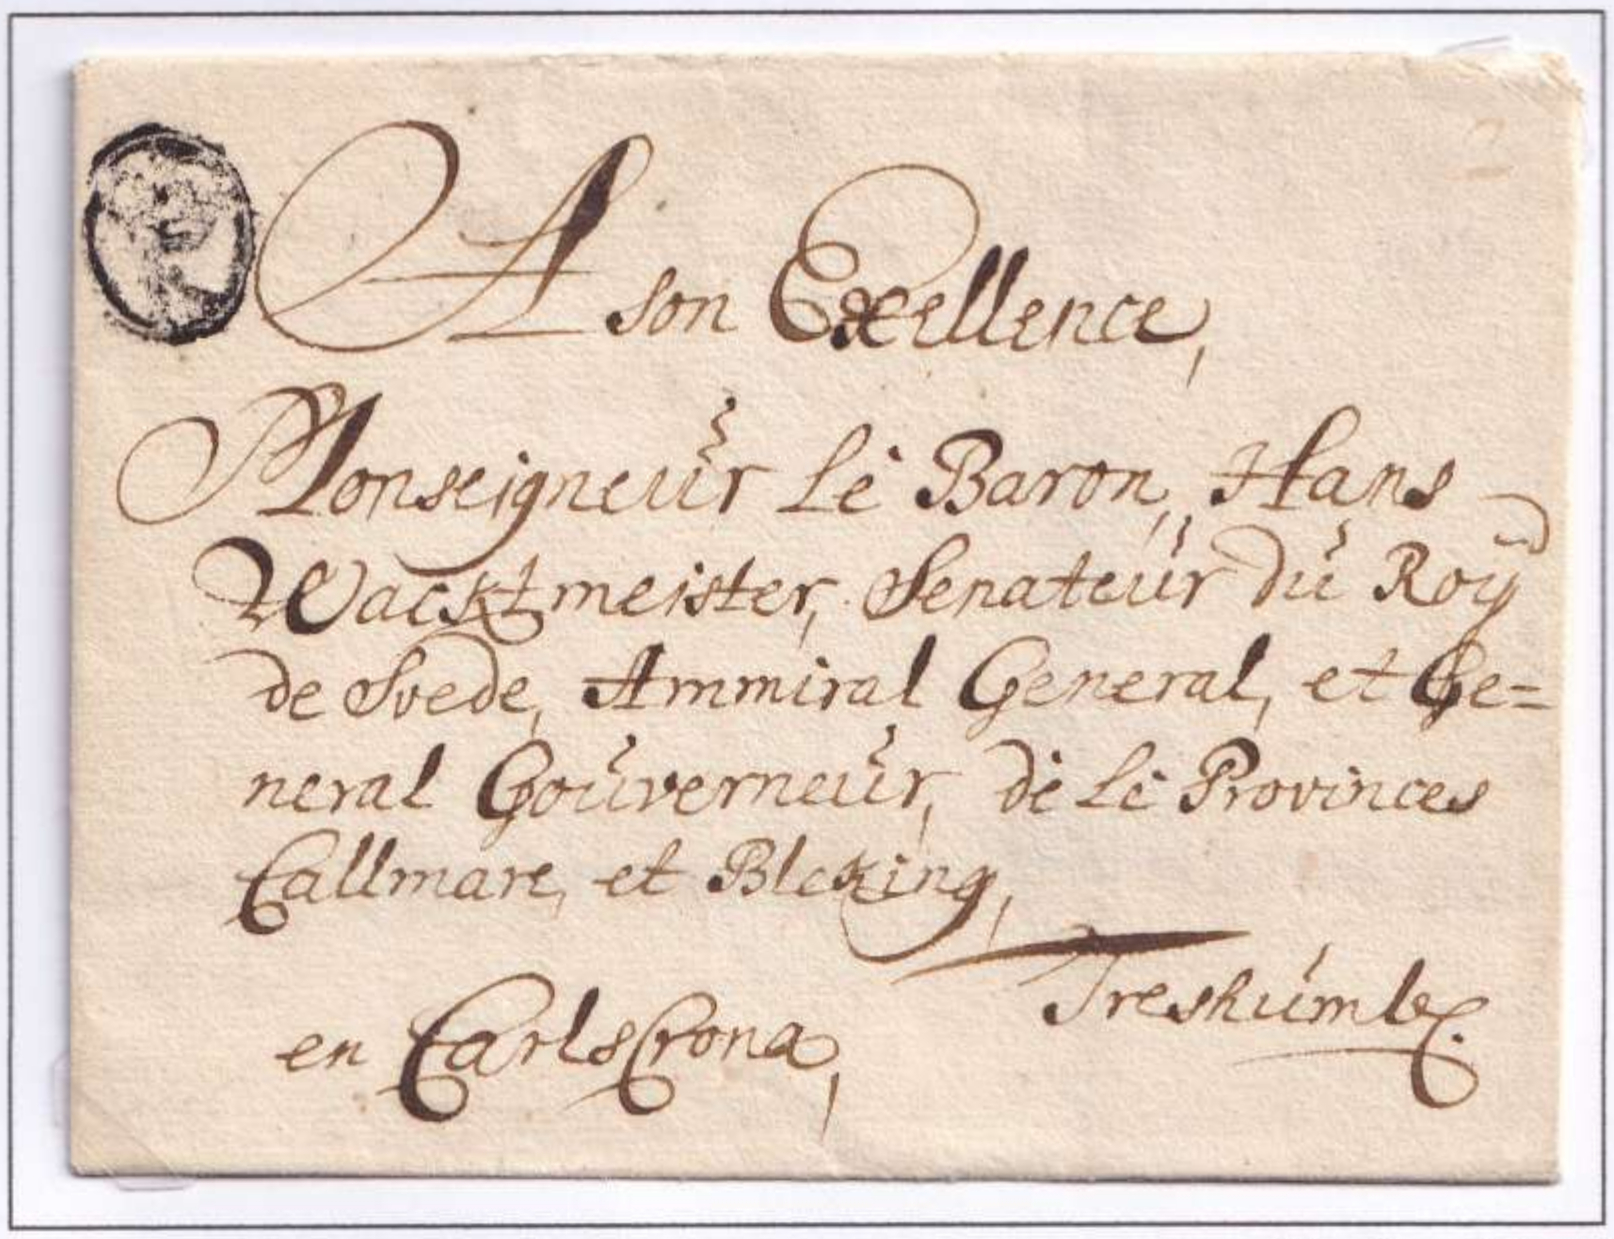 A son Exellence,
Monseigneur Le Baron, Hans
Wacktmeister, Senateur du Roÿ
de Svede, Ammiral General, et Ge=
neral Gouverneur, de Le Provinces
Callmare, et Bleking,
Treshumb
en CarlsCrona,